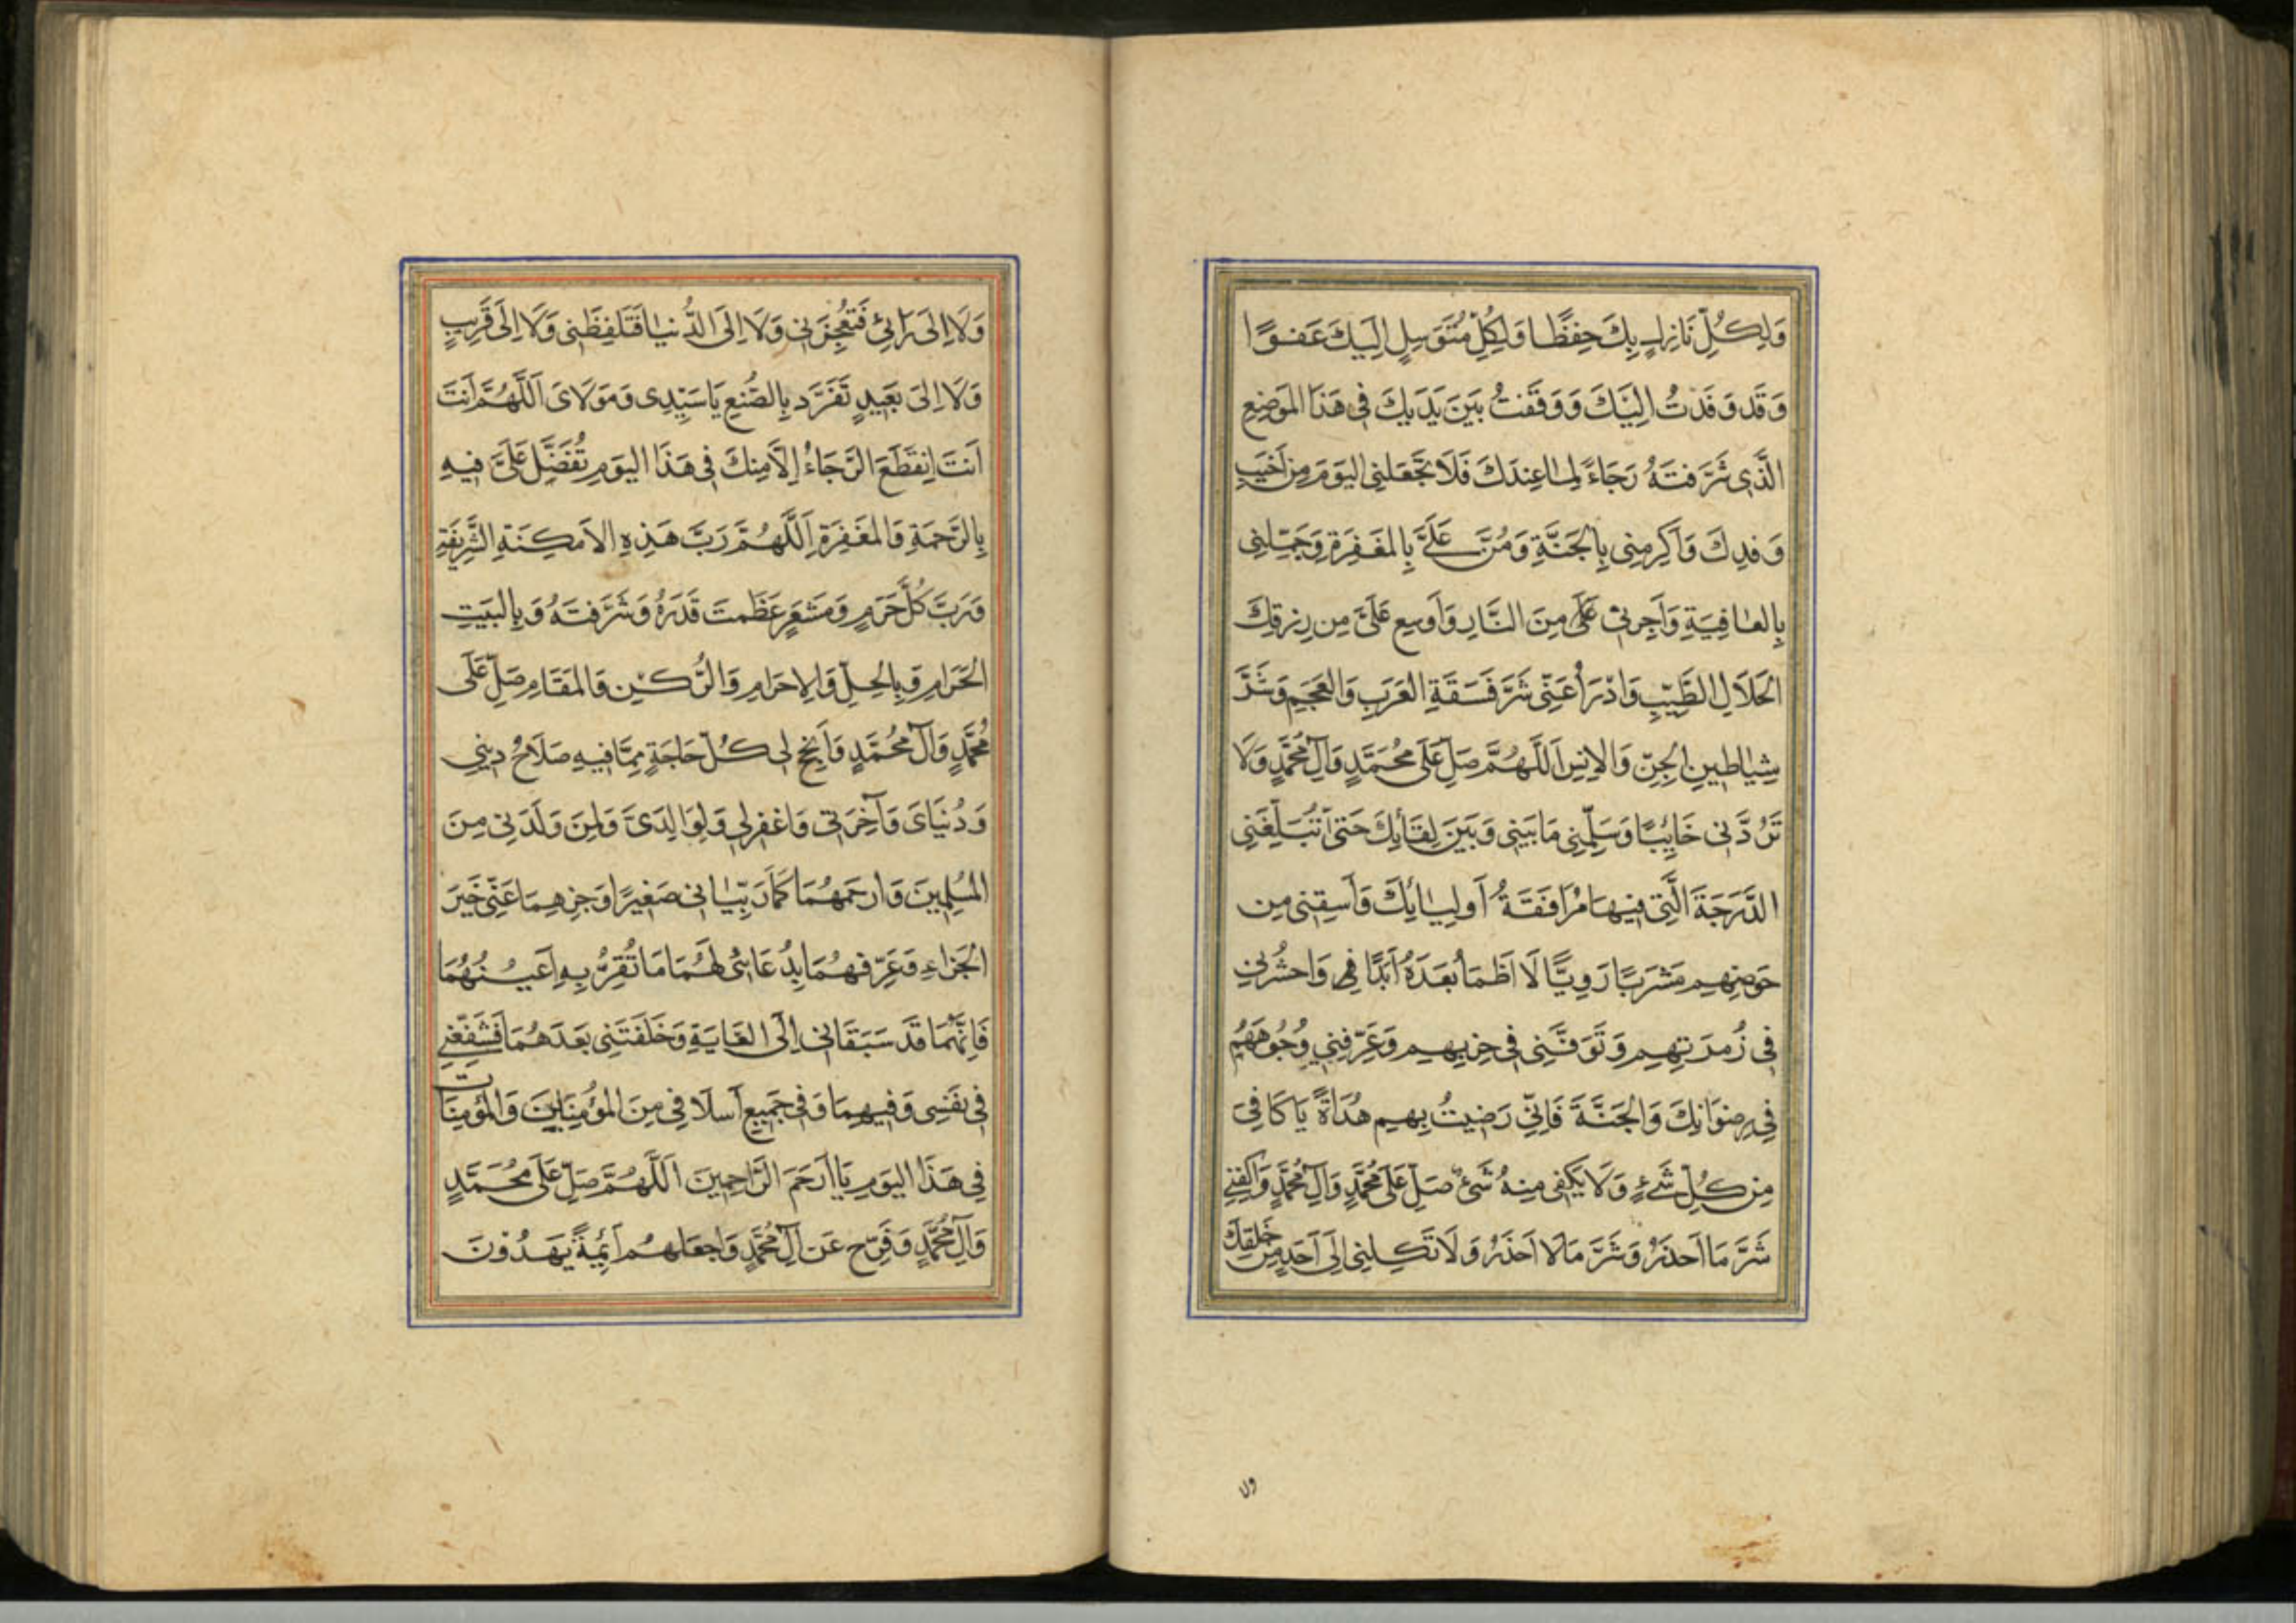 وَلِكُلِّ نَازِلٍ بِكَ حِفْظًا وَلِكُلِّ مُتَوَسِّلٍ اِلَيْكَ عَفْوًا
وَقَدْ وَفَدْتُ اِلَيْكَ وَوَقَفْتُ بَيْنَ يَدَيْكَ فِى هَذَا المَوْضِعِ
الَّذِى شَرَّفْتَهُ رَجَاءً لِمَا عِنْدَكَ فَلَا تَجْعَلْنِى اليَوْمَ مِنْ اَخْيَبِ
وَفْدِكَ وَاَكْرِمْنِى بِالجَنَّةِ وَمُنَّ عَلَىَّ بِالمَغْفِرَةِ وَجَمِّلْنِى
بِالعَافِيَةِ وَاَجِرْنِى مِنَ النَّارِ وَاَوْسِعْ عَلَىَّ مِنْ رِزْقِكَ
الحَلَالِ الطَّيِّبِ وَادْرَأْ عَنِّى شَرَّ فَسَقَةِ العَرَبِ وَالعَجَمِ وَشَرَّ
شَيَاطِينِ الجِنِّ وَالاِنْسِ اَللَّهُمَّ صَلِّ عَلَى مُحَمَّدٍ وَآلِ مُحَمَّدٍ وَلَا
تَرُدَّنِى خَائِبًا وَسَلِّمْنِى مَا بَيْنِى وَبَيْنَ لِقَائِكَ حَتَّى تُبَلِّغَنِى
الدَّرَجَةَ الَّتِى فِيهَا مُرَافَقَةُ اَوْلِيَائِكَ وَاَسْقِنِى مِنْ
حَوْضِهِمْ مَشْرَبًا رَوِيًّا لَا اَظْمَأُ بَعْدَهُ اَبَدًا وَاحْشُرْنِى
فِى زُمْرَتِهِمْ وَتَوَفَّنِى فِى حِزْبِهِمْ وَعَرِّفْنِى وُجُوهَهُمْ
فِى رِضْوَانِكَ وَالجَنَّةَ فَاِنِّى رَضِيتُ بِهِمْ هُدَاةً يَا كَافِىَ
مِنْ كُلِّ شَىْءٍ وَلَا يَكْفِى مِنْهُ شَىْءٌ صَلِّ عَلَى مُحَمَّدٍ وَآلِ مُحَمَّدٍ وَاكْفِنِى
شَرَّ مَا اَحْذَرُ وَشَرَّ مَا لَا اَحْذَرُ وَلَا تَكِلْنِى اِلَى اَحَدٍ مِنْ خَلْقِكَ
ولا
وَلَا اِلَى رَائِىْ فَتُعْجِزَنِى وَلَا اِلَى الدُّنْيَا فَتَلْفِظَنِى وَلَا اِلَى قَرِيبٍ
وَلَا اِلَى بَعِيدٍ تَفَرَّدْ بِالصُّنْعِ يَا سَيِّدِى وَمَوْلَاىَ اَللَّهُمَّ اَنْتَ
اَنْتَ اِنْقَطَعَ الرَّجَاءُ اِلَّا مِنْكَ فِى هَذَا اليَوْمِ تَفَضَّلْ عَلَىَّ فِيهِ
بِالرَّحْمَةِ وَالمَغْفِرَةِ اَللَّهُمَّ رَبَّ هَذِهِ الاَمْكِنَةِ الشَّرِيفَةِ
وَرَبَّ كُلِّ حَرَمٍ وَمَشْعَرٍ عَظَّمْتَ قَدْرَهُ وَشَرَّفْتَهُ وَبِالبَيْتِ
الحَرَامِ وَبِالحِلِّ وَالاِحْرَامِ وَالرُّكْنِ وَالمَقَامِ صَلِّ عَلَى
مُحَمَّدٍ وَآلِ مُحَمَّدٍ وَاَنْجِحْ لِى كُلَّ حَاجَةٍ مِمَّا فِيهِ صَلَاحُ دِينِى
وَدُنْيَاىَ وَآخِرَتِى وَاغْفِرْ لِى وَلِوَالِدَىَّ وَلِمَنْ وَلَدَنِى مِنَ
المُسْلِمِينَ وَارْحَمْهُمَا كَمَا رَبَّيَانِى صَغِيرًا وَجْزِهِمَا عَنِّى خَيْرَ
الجَزَاءِ وَعَرِّفْهُمَا بِدُعَائِى لَهُمَا مَا تُقِرُّ بِهِ اَعْيُنَهُمَا
فَاِنَّهُمَا قَدْ سَبَقَانِى اِلَى الغَايَةِ وَخَلَّفْتَنِى بَعْدَهُمَا فَشَفِّعْنِى
فِى نَفْسِى وَفِيهِمَا وَفِى جَمِيعِ اَسْلَافِى مِنَ المُؤْمِنِينَ وَالمُؤْمِنَاتِ
فِى هَذَا اليَوْمِ يَا اَرْحَمَ الرَّاحِمِينَ اَللَّهُمَّ صَلِّ عَلَى مُحَمَّدٍ
وَآلِ مُحَمَّدٍ وَفَرِّجْ عَنْ آلِ مُحَمَّدٍ وَاجْعَلْهُمْ اَئِمَّةً يَهْدُونَ